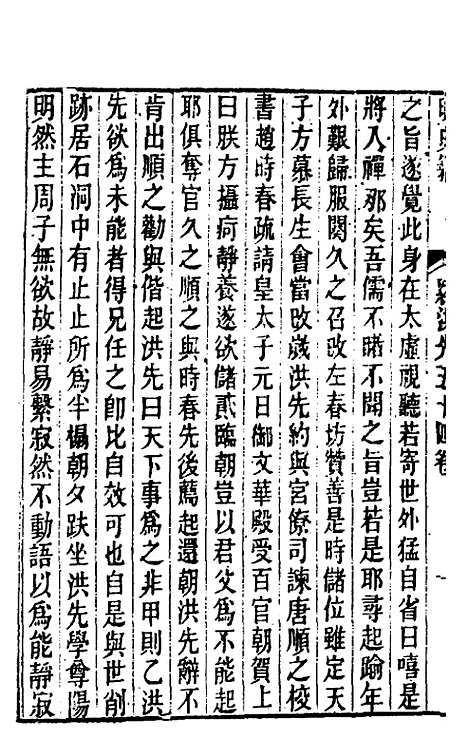 之旨遂覺此身在太虛視聽若寄世外猛自省曰嘻是
將入禪那矣吾儒不睹不聞之旨豈若是耶尋起踰年
外艱歸服闋久之召改左春坊贊善是時儲位雖定天
子方慕長生會當改歲洪先約與宮僚司諫唐順之校
書趙時春疏請皇太子元日御文華殿受百官朝賀上
曰朕方攝疴靜養遂欲儲貳臨朝豈以君父爲不能起
耶俱奪官久之順之與時春先後薦起還朝洪先辭不
肯出順之勸與偕起洪先曰天下事爲之非甲則乙洪
先欲爲未能者得兄任之卽比自效可也自是與世削
跡居石洞中有止止所爲半榻朝夕趺坐洪先學尊陽
明然主周子無欲故靜易繫寂然不動語以爲能靜寂